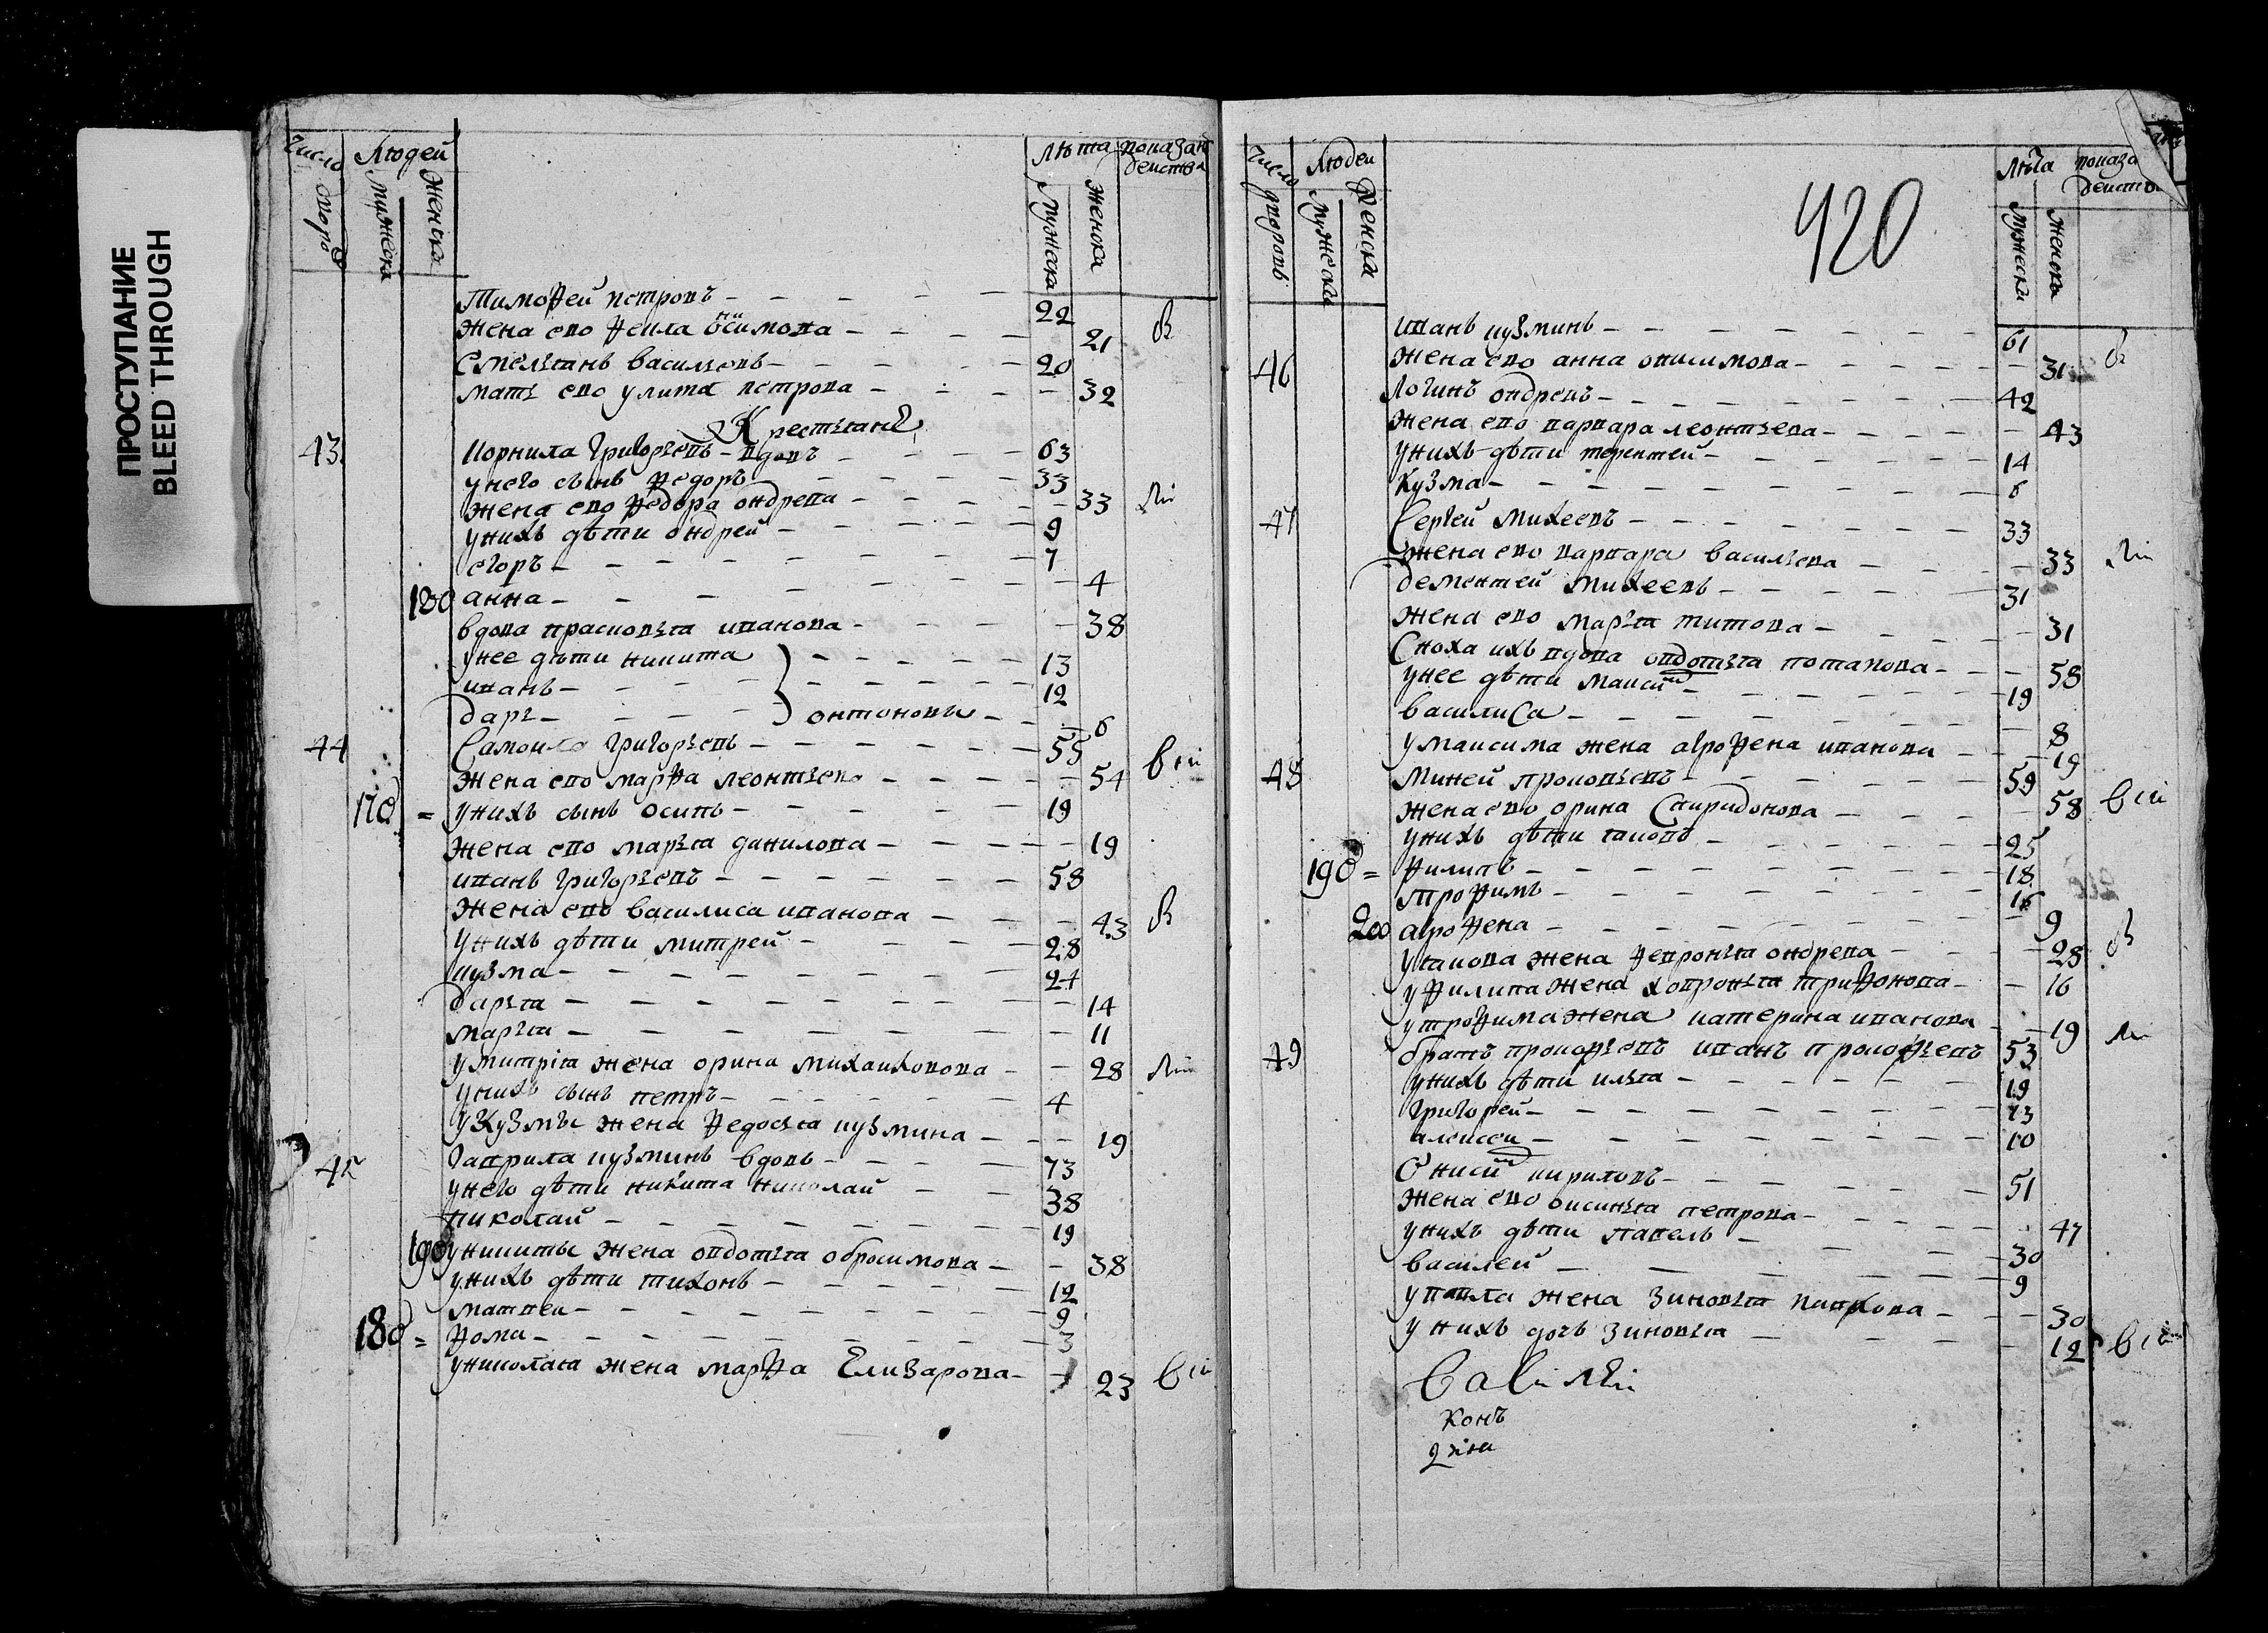 ПРОСТУПАНИЕ
BLEED THROUGH
Число дворо Людей Мужеска Женска Лѣта Мужеска Женска показан действа
Тимофей петровъ - 22
жена ево феила - 21
Емельянъ васильевъ - 20
мать ево улита петрова - 32
Крестьяне
43 Корнила григорьевъ - вдовъ - 63
у него сынъ федоръ - 33
жена ево федора ондрева - 33
у нихъ дѣти ондрей - 9
егоръ - 7
180 анна - 4
вдова прасковья иванова - 38
у нее дѣти никита - 13
иванъ - 12
дарь - онтоновы - 6
44 Самоила григорьевъ - 55
жена ево марфа леонтьева - 54
170 = у нихъ сынъ осипъ - 19
жена ево марья данилова - 19
иванъ григорьевъ - 58
жена ево василиса иванова - 43
у нихъ дѣти митрей - 28
кузма - 24
дарья - 14
марья - 11
у митрія жена орина - 28
у нихъ сынъ петръ - 4
у Кузмы жена федосья кузмина - 19
45 гаврила кузминъ вдовъ - 73
у него дѣти никита николай - 38
николай - 19
190 у никиты жена овдотья обросимова - 38
у нихъ дѣти тихонъ - 12
матвей - 9
180 = фома - 3
у николая жена марфа Елизарова - 23
420
Число дворовъ Людей Мужеска Женска Лѣта Мужеска Женска показа действ
иванъ кузминъ - 61
жена ево анна онисимова - 31
46 Логинъ ондревъ - 42
жена ево варвара леонтьева - 43
у нихъ дѣти терентей - 14
Кузма - 6
47 Сергей михеевъ - 33
жена ево варвара васильева - 33
дементей михеевъ - 31
жена ево марья титова - 31
Сноха ихъ вдова овдотья потапова - 58
у нее дѣти максим - 19
василиса - 8
у максима жена агрофена иванова - 19
48 Миней прокофьевъ - 59
жена ево орина Спиридонова - 58
у нихъ дѣти иаковъ - 25
190 = филипъ - 18
трофимъ - 16
200 агрофена - 9
у иакова жена февронья ондрева - 28
у филипа жена хавронья трифонова - 16
у трофима жена катерина иванова - 19
49 братъ прокофьевъ иванъ прокофьевъ - 53
у нихъ дѣти илья - 19
григорей - 13
алексей - 10
Онисим кириловъ - 51
жена ево оксинья петрова - 47
у нихъ дѣти павелъ - 30
василей - 9
у павла жена зиновья - 30
у нихъ дочь зиновья - 12